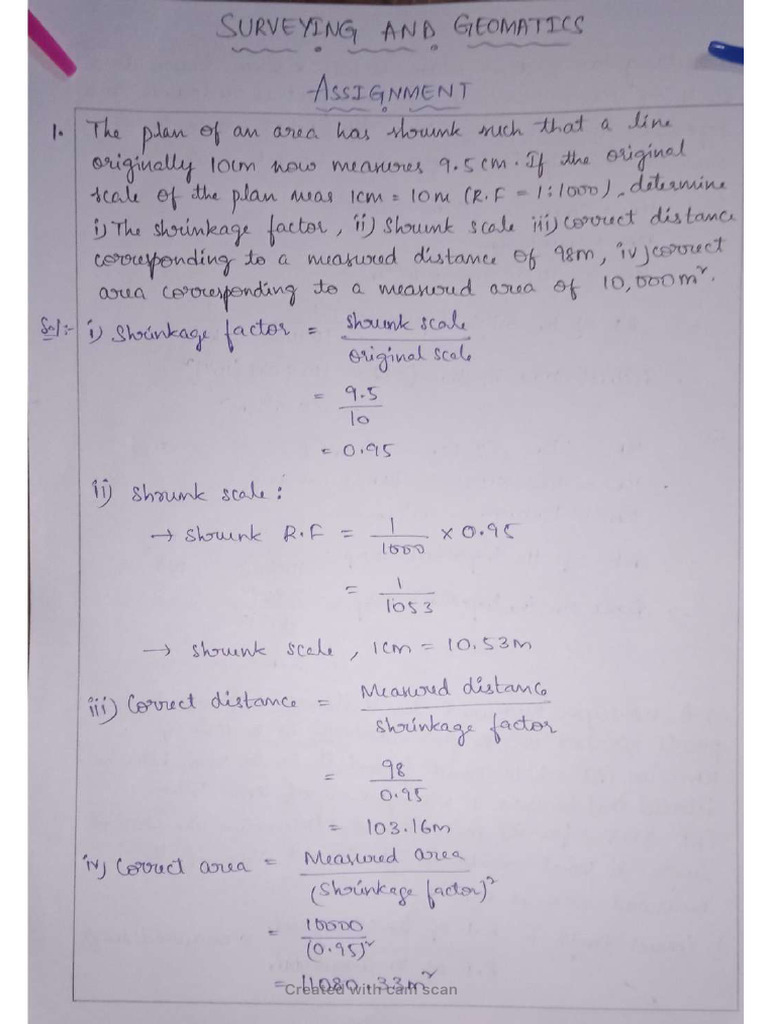 SURVEYING AND GEOMATICS
ASSIGNMENT
1. The plan of an area has shrunk such that a line
originally 10cm now measures 9.5cm. If the original
scale of the plan was 1cm = 10m (R.F = 1:1000), determine
i) The shrinkage factor, ii) Shrunk scale iii) correct distance
corresponding to a measured distance of 98m, iv) correct
area corresponding to a measured area of 10,000m².
Sol:- i) Shrinkage factor = Shrunk scale / original scale
= 9.5 / 10
= 0.95
ii) Shrunk scale:
→ Shrunk R.F = 1 / 1000 × 0.95
= 1 / 1053
→ Shrunk scale, 1cm = 10.53m
iii) Correct distance = Measured distance / Shrinkage factor
= 98 / 0.95
= 103.16m
iv) Correct area = Measured area / (Shrinkage factor)²
= 10000 / (0.95)²
= 11080.33m²
Created with cam scan